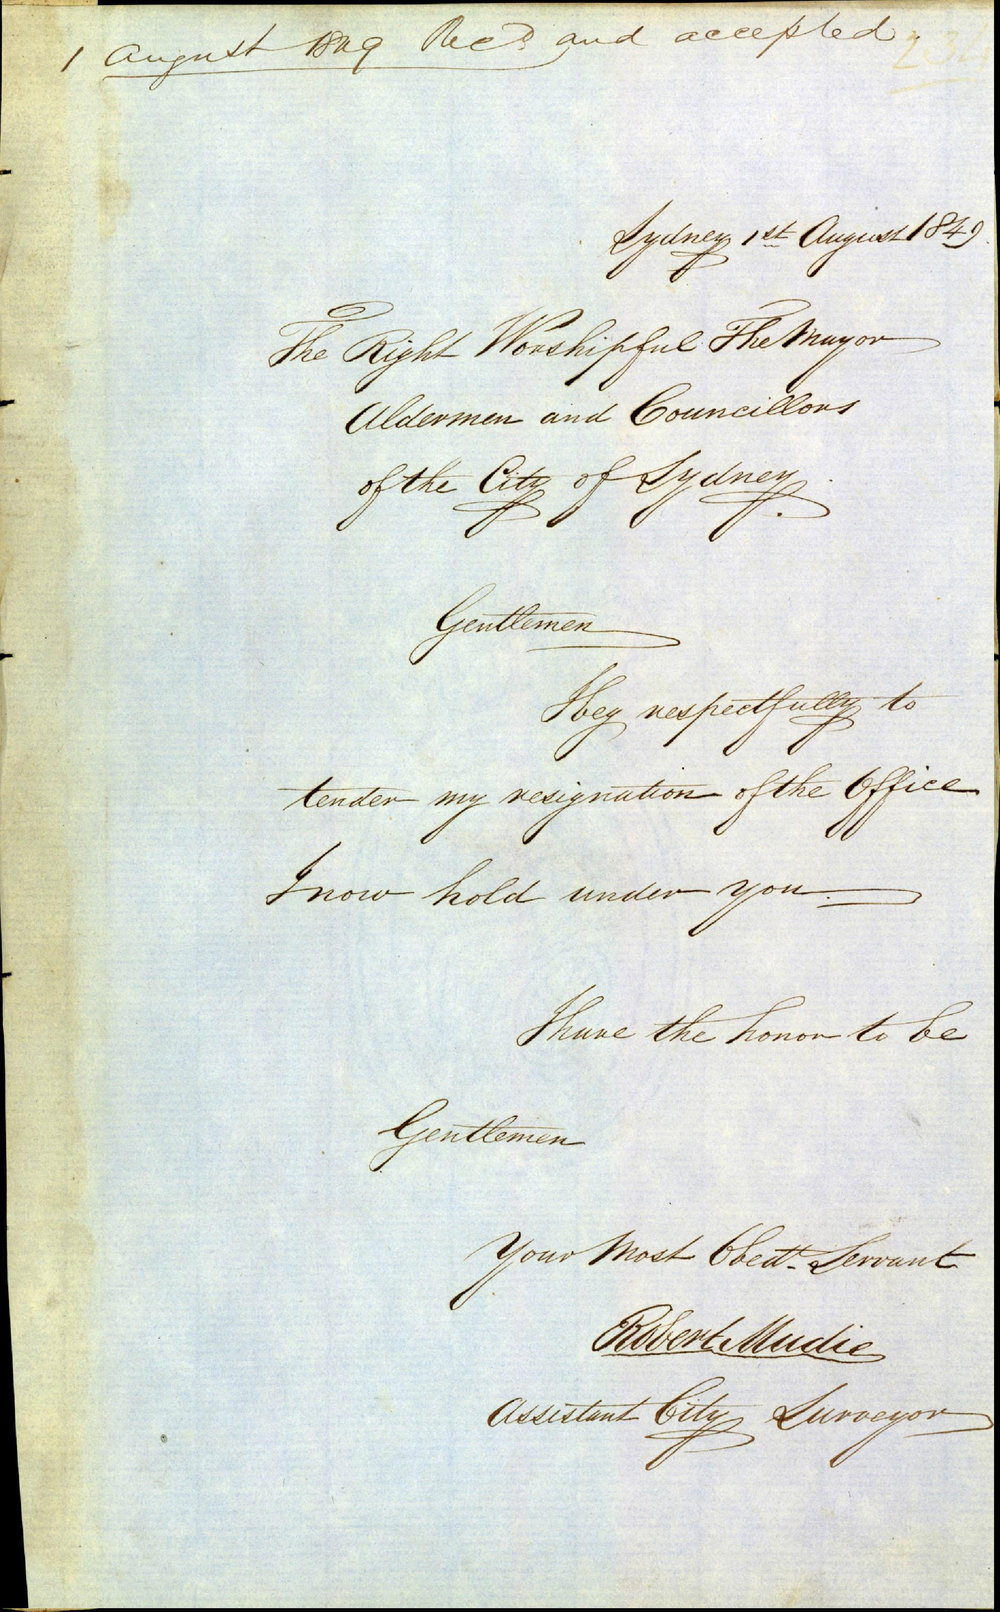 1 August 1849 Recd. and accepted.
Sydney 1st August 1849.
The Right Worshipful The Mayor
Aldermen and Councillors
of the City of Sydney.
Gentlemen
I beg respectfully to
tender my resignation of the Office
I now hold under you.
I have the honor to be
Gentlemen
Your Most Obedt. Servant
Robert Mudie
Assistant City Surveyor